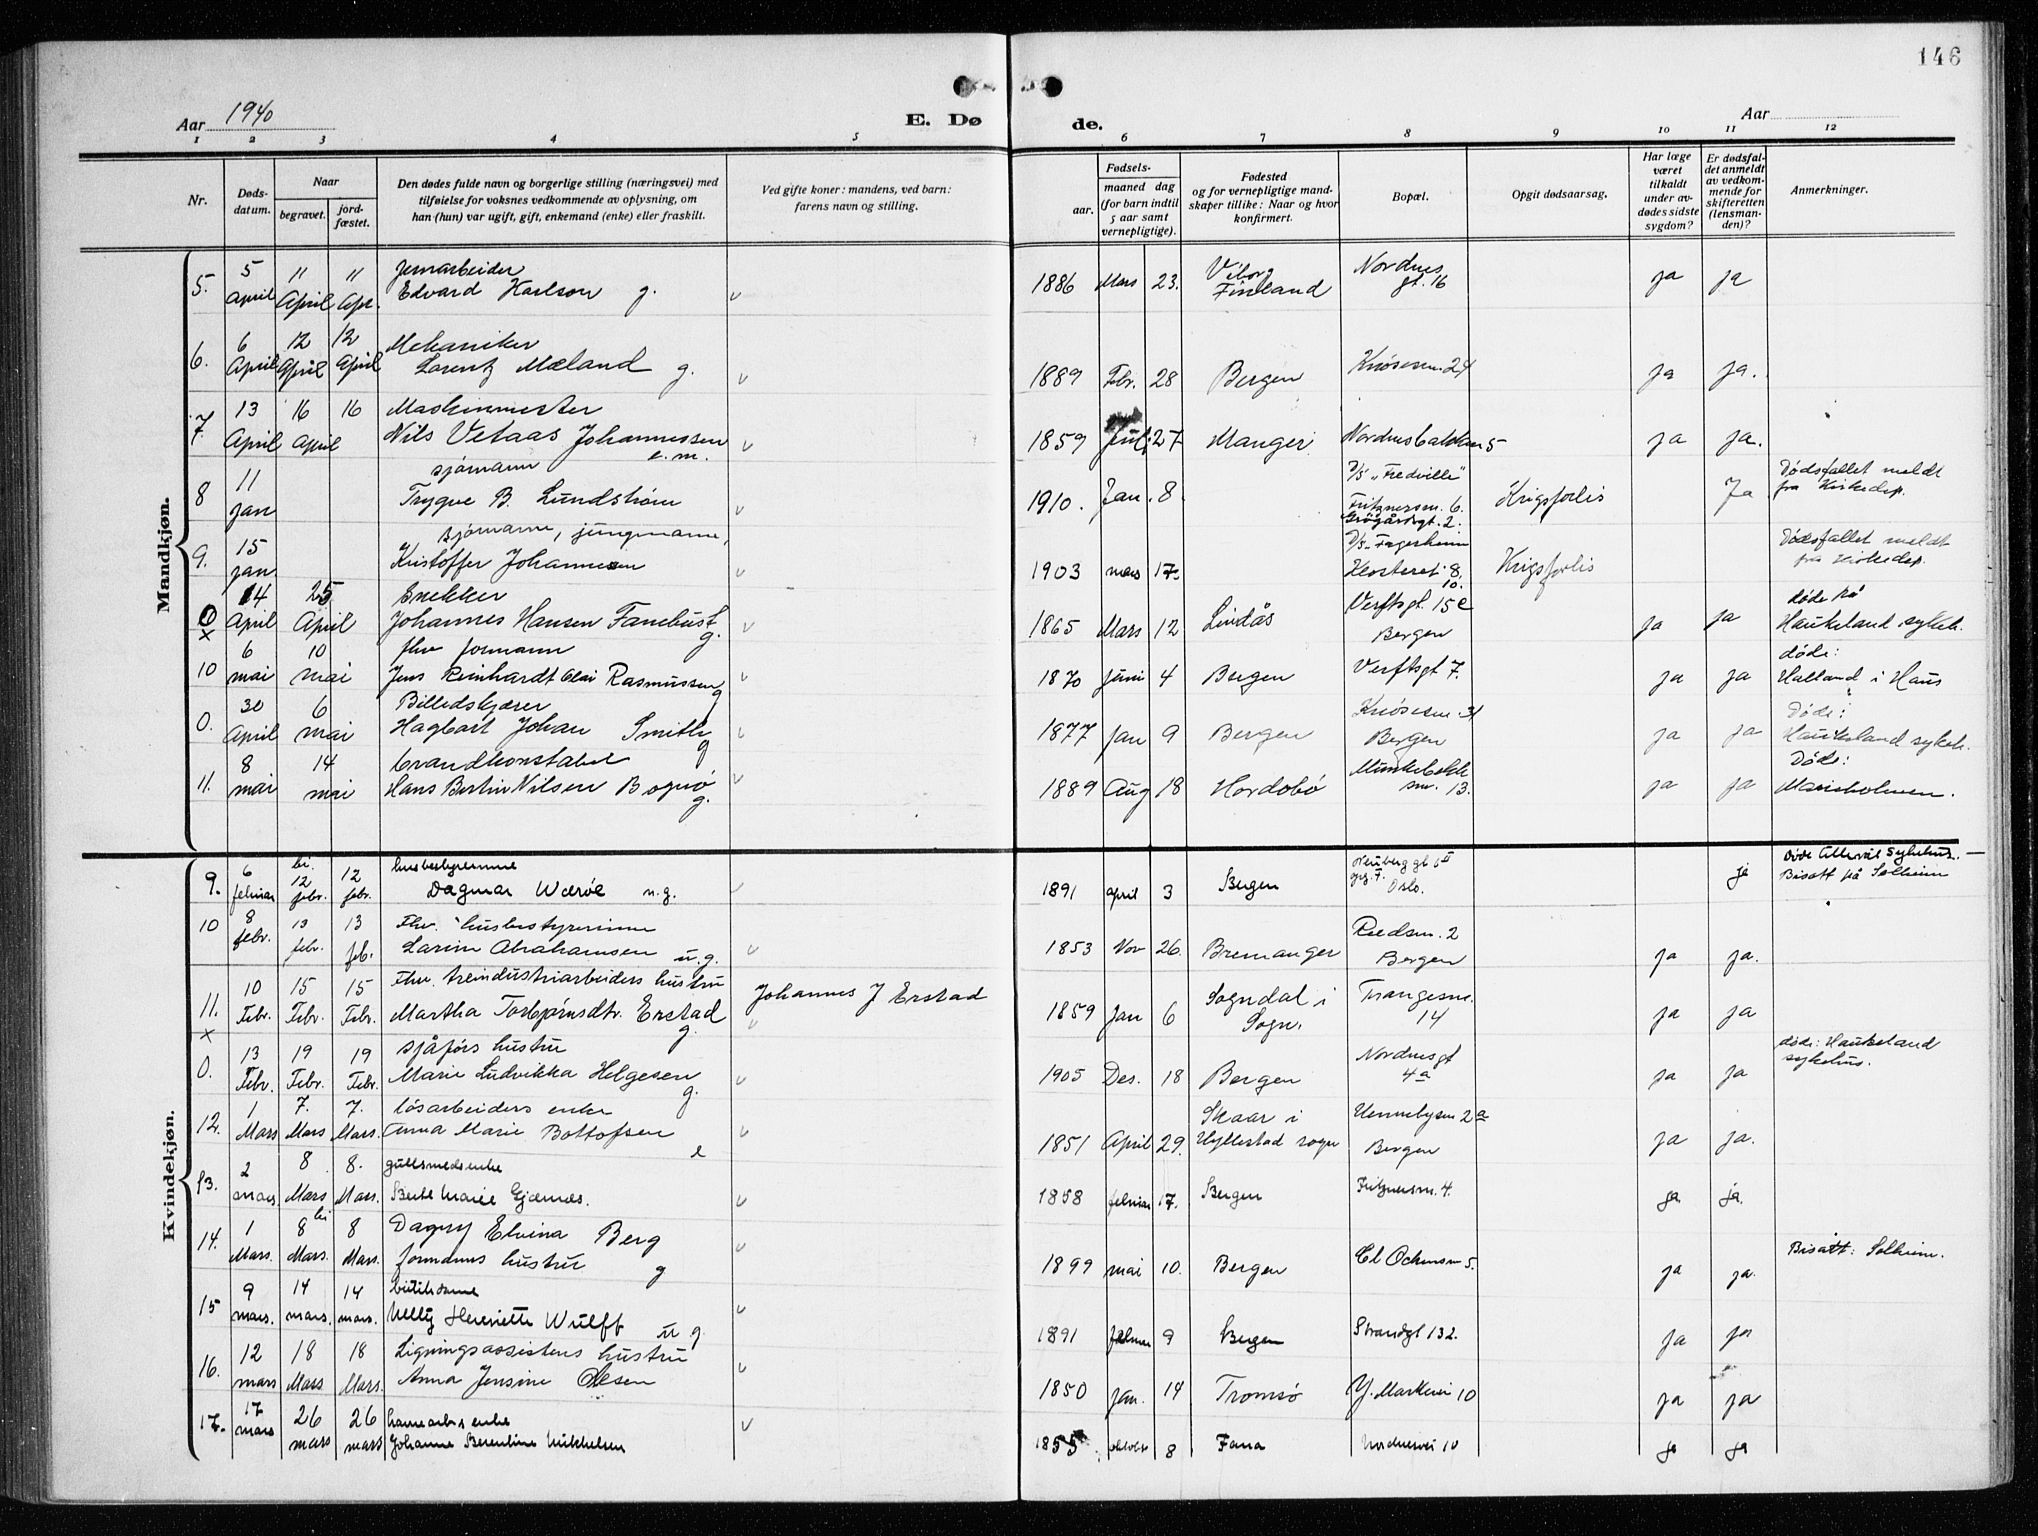 146
Aar 1940
E. Døde.
Aar
1 2 3 4 5 6 7 8 9 10 11 12
Nr.
Døds-datum.
Naar
begravet.
jord-fæstet.
Den dødes fulde navn og borgerlige stilling (næringsvei) med
tilføielse for voksnes vedkommende av oplysning, om
han (hun) var ugift, gift, enkemand (enke) eller fraskilt.
Ved gifte koner: mandens, ved barn:
farens navn og stilling.
Fødsels-
aar.
maaned dag
(for barn indtil
5 aar samt
vernepligtige).
Fødested
og for vernepligtige mand-
skaper tillike: Naar og hvor
konfirmert.
Bopæl.
Opgit dødsaarsag.
Har læge
været
tilkaldt
under av-
dødes sidste
sygdom?
Er dødsfal-
det anmeldt
av vedkom-
mende for
skifteretten
(lensman-
den)?
Anmerkninger.
Mandkjøn.
5. 5 April 11 April 11 Apr. Jernarbeider
Edvard Karlson g. 1886 Mars 23. Viborg Finland Nordnesgt. 16 ja ja
6. 6 April 12 April 12 April Mekaniker
Lorentz Mæland g. 1889 Febr. 28 Bergen Knøsesm. 24 ja ja.
7. 13 April 16 April 16 Maskinmester
Nils Vetaas Johannessen e.m. 1859 Juli 27 Manger Nordnesbakken 5 ja ja.
8 11 jan sjømann
Trygve B. Lundstrøm 1910. Jan. 8. D/S "Fredville"
Fritznersm. 6.
Grøgårdsgt. 2. Krigsforlis Ja Dødsfallet meldt
fra Kirkedep.
9. 15 jan. sjømann, jungmann,
Kristoffer Johannessen 1903 mars 17. D/S "Fagerheim
Klosteret 8, 10. Krigsforlis Dødsfallet meldt
fra Kirkedep.
0 x 14 April 25 April Snekker
Johannes Hansen Fanebust g. 1865 Mars 12 Lindås Verftsgt. 15e
Bergen ja ja døde på
Haukeland sykeh.
10 6 mai 10 mai fhv formann
Jens Reinhardt Olai Rasmussen g 1870 juni 4 Bergen Verftsgt 7. ja ja døde:
Hatland i Haus
0. 30 April 6 mai Billedskjærer
Hagbart Johan Smith g 1877 Jan 9 Bergen Knøsesm. 31
Bergen ja ja Døde:
Haukeland sykeh.
11. 8 mai 14 mai brandkonstabel
Hans Bertin Nilsen Bognø g. 1889 Aug 18 Hordabø Munkebekksm. 13. ja ja Døde:
Marieholmen.
Kvindekjøn.
9. 6 februar bi. 12 febr. 12 febr. husbestyrerinne
Dagmar Wærøe u.g. 1891 april 3 Bergen Neuberggt 6 II
Oslo. ja Døde Ullevål Sykehus.
Bisatt på Solheim
10 8 febr. 13 febr. 13 feb. Fhv. husbestyrerinne
Larine Abrahamsen u.g. 1853 Nov 26. Bremanger Reedsm. 2
Bergen ja ja.
11. x 10 Febr. 15 Febr. 15 Febr. Fhv. treindustriarbeiders hustru
Martha Torbjørnsdtr. Erstad g. Johannes J Erstad 1859 Jan 6 Sogndal i
Sogn. Trangesm. 14 ja ja
0. 13 Febr. 19 Febr. 19 Febr. sjåførs hustru
Marie Ludvikka Helgesen g. 1905 Des. 18 Bergen Nordnesgt 4a ja ja døde: Haukeland
sykehus.
12. 1 Mars 7. Mars 7. Mars. løsarbeiders enke
Anna Marie Bottofsen e 1851 April 29. Skaar i
Hyllestad sogn Hennebysm 2a
Bergen ja ja.
13. 2 mars 8 Mars 8. Mars. gullsmedsenke
Berte Marie Gjærnæs. 1858 februar 17. Bergen Fritznersm. 4. ja ja.
14. 1 Mars. 8 bi Mars. 8 Mars. Dagny Elvina Berg
formanns hustru g 1899 mai 10. Bergen Cl Ockensm 5. ja ja. Bisatt: Solheim.
15 9 mars. 14 mars. 14 mars. butikdame
Nelly Henriette Wulff u g. 1891 februar 9 Bergen Strandgt 132. ja ja
16. 12 mars 18 Mars 18 Mars. Ligningsassistens hustru
Anna Jensine Olsen 1850 jan. 14 Tromsø Y. Markevei 10 ja ja
17. 17 mars 26 mars 26 mars havnearb.s enke
Johanne Berentine Mikkelsen 1855 oktober 8 Fana Nordnesvei 10 ja ja